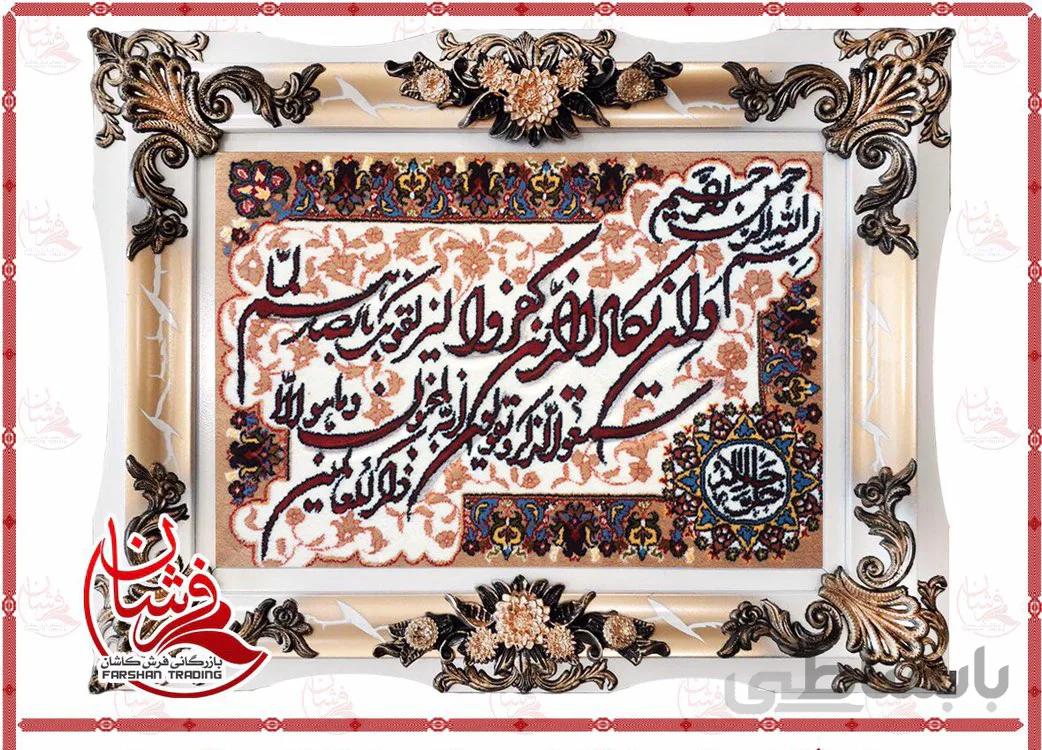 بسم الله الرحمن الرحیم
وان یکاد الذین کفروا لیزلقونک بابصارهم لما
سمعوا الذکر و یقولون انه لمجنون وما هو الا
ذکر للعالمین
فرشان
بازرگانی فرش کاشان
FARSHAN TRADING
باباسلطی